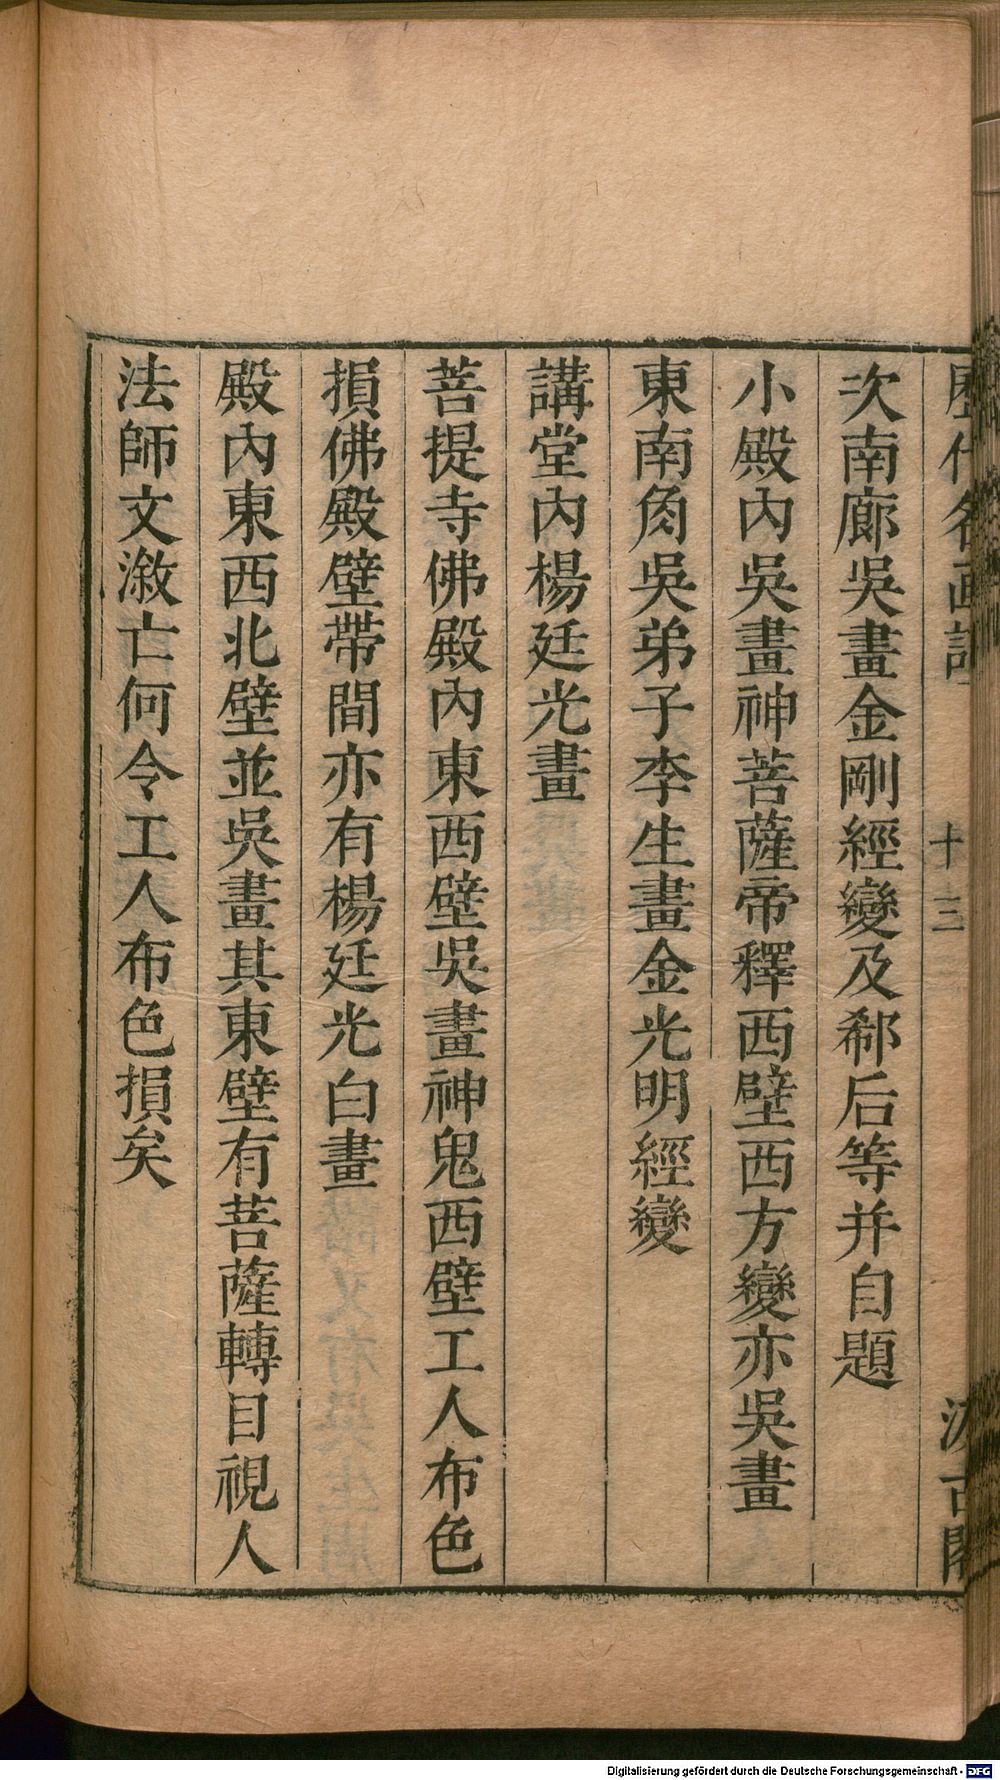 歷代名畫記
十三
汲古閣
次南廊吳畫金剛經變及郗后等并自題
小殿內吳畫神菩薩帝釋西壁西方變亦吳畫
東南角吳弟子李生畫金光明經變
講堂內楊廷光畫
菩提寺佛殿內東西壁吳畫神鬼西壁工人布色
損佛殿壁帶間亦有楊廷光白畫
殿內東西北壁並吳畫其東壁有菩薩轉目視人
法師文漵亡何令工人布色損矣
Digitalisierung gefördert durch die Deutsche Forschungsgemeinschaft - DFG